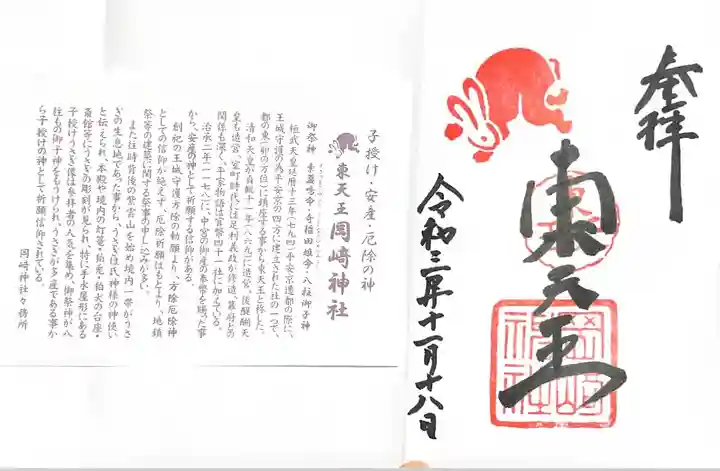 奉拝
東天王
岡崎神社
令和三年十一月十八日
子授け・安産・厄除の神
東天王 岡崎神社
御祭神 素盞嗚命・奇稲田姫命・八柱御子神
桓武天皇延暦十三年(七九四)平安京遷都の際に、
王城守護の為平安京の四方に建立された社の一つで、
都の東(卯の方位)に鎮座する事から東天王と称した。
清和天皇が貞観十一年(八六九)に造営。後醍醐天
皇も造営、室町時代には足利義政が修造、幕府との
関係も深く、平家物語は官幣四十一社に加えている。
治承二年(一一七八)に、中宮の御産の奉幣を賜った事
から、安産の神として祈願する信仰がある。
創祀の王城守護方除の勅願より、方除厄除神
としての信仰が絶えず、厄除祈願はもとより、地鎮
祭等の建築に関する祭事の申し込みが多い。
また往時背後の紫雲山を始め境内一帯がうさ
ぎの生息地であった事から、うさぎは氏神様の神使い
と伝えられ、本殿や境内の灯篭・狛兎・狛犬の台座・
斎館等にうさぎの彫刻が見られ、特に手水屋形にある
子授けうさぎ像は参拝者の人気を集め、御祭神が八
柱もの御子神をもうけられ、うさぎが多産である事か
ら子授けの神として祈願信仰されている。
岡崎神社々務所